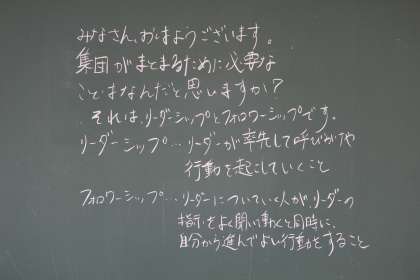 みなさん、おはようございます。
集団がまとまるために必要な
ことはなんだと思いますか？
それは、リーダーシップとフォロワーシップです。
リーダーシップ…リーダーが率先して呼びかけや
行動を起こしていくこと
フォロワーシップ…リーダーについていく人が、リーダーの
指示をよく聞いて動くと同時に、
自分から進んでよい行動をすること